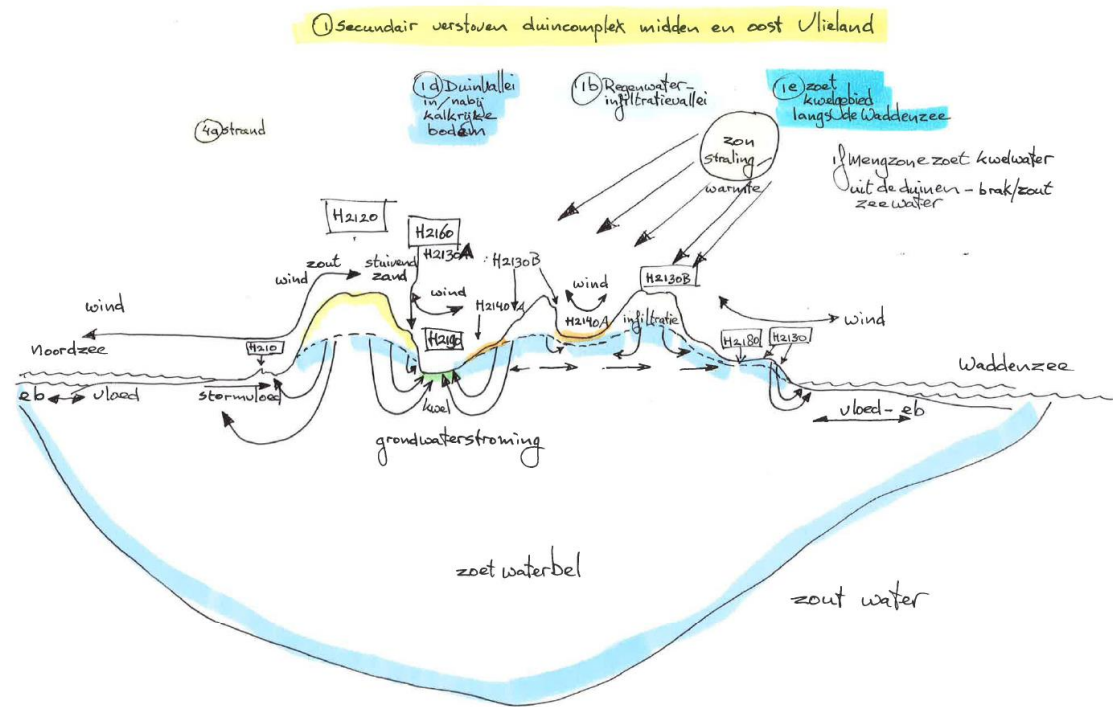 ① Secundair verstoven duincomplex midden en oost Vlieland
1d Duinvallei
in/nabij
kalkrijke
bodem
1b Regenwater-
infiltratievallei
1e zoet
kwelgebied
langs de Waddenzee
4a strand
zon
straling
warmte
1f Mengzone zoet kwelwater
uit de duinen - brak/zout
zeewater
H2120
H2160
H2130A
zout
stuivend
zand
wind
H2130B
wind
wind
H2130B
wind
H2140A
H2140A
infiltratie
wind
Noordzee
H210
H2190
H2180
H2130
Waddenzee
eb
vloed
stormvloed
kwel
vloed - eb
grondwaterstroming
zoet waterbel
zout water